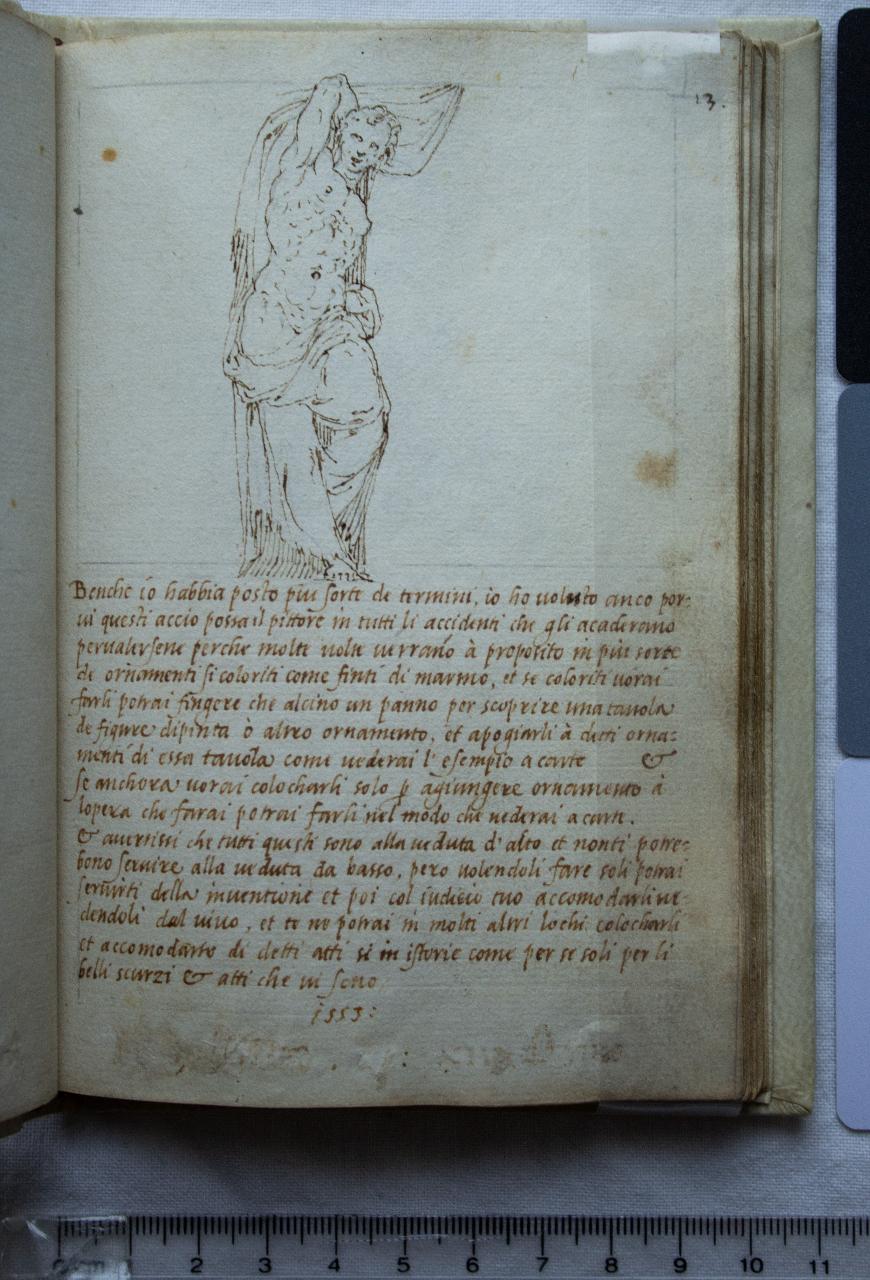 13.
Benche io habbia posto piu sorte di termini, io ho voluto anco por:
ui questi accio possa il pittore in tutti li accidenti che gli acaderano
perualersene perche molte uolte uerrano à proposito in più sorte
di ornamenti si coloriti come finti di marmo, et se coloriti uorai
farli potrai fingere che alcino un panno per scoprire una tauola
de figure dipinta ò altro ornamento, et apogiarli à detti orna:
menti di essa tauola come uederai l'esempio a carte &
se anchora uorai colocharli solo p agiungere ornamento à
lopera che farai potrai farli nel modo che uederai a carte.
& auertissi che tutti questi sono alla ueduta d'alto et nonti potre:
bono seruire alla ueduta da basso, pero uolendoli fare soli potrai
seruirti della inuentione et poi col iudicio tuo accomodarli ue:
dendoli dal uiuo, et te ne potrai in molti altri lochi colocharli
et accomodarte di detti atti si in istorie come per se soli per li
belli scurzi & atti che ui sono
1553:
cm 2 3 4 5 6 7 8 9 10 11